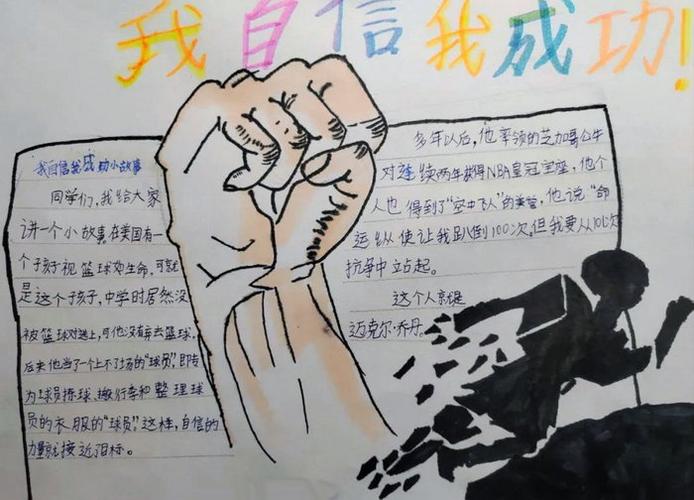 我自信我成功!
我自信我成功小故事
同学们,我给大家
讲一个小故事,在美国有一
个子孩子视篮球如生命,可就
是这个子孩子,中学时居然没
被篮球对选上,可他没有弃去篮球,
后来他当了一个上不了场的“球员”,即专
为球员拣球、搬行李和整理球
员的衣服的“球员”,这样,自信的
力量就接近目标。
多年以后,他率领的芝加哥公牛
对连续两年获得NBA皇冠宝座,他个
人也得到了“空中飞人”的美誉,他说“命
运纵使让我趴倒100次,但我要从101次
抗争中立站起。
这个人就是
迈克尔·乔丹。